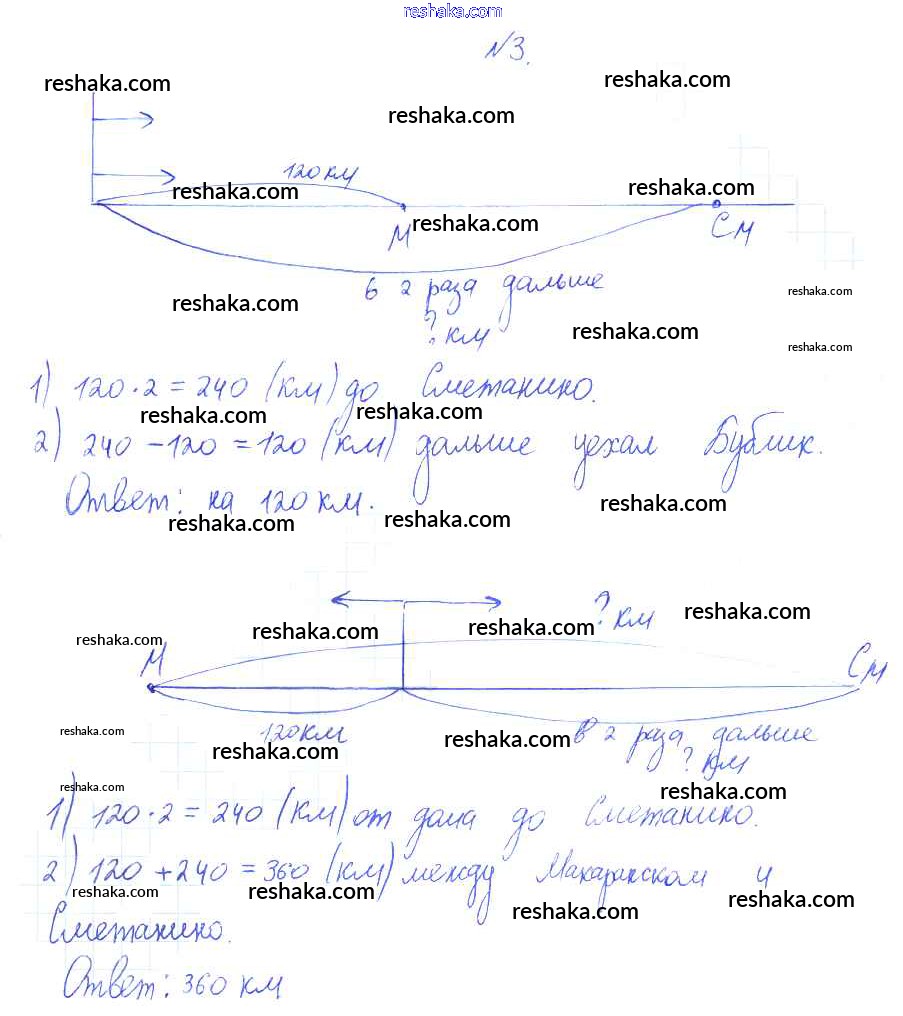 reshaka.com
№3.
reshaka.com
reshaka.com
reshaka.com
120 км
reshaka.com
reshaka.com
М
reshaka.com
См
в 2 раза дальше
reshaka.com
reshaka.com
? км
reshaka.com
reshaka.com
1) 120·2=240 (км) до Сметанино.
reshaka.com
reshaka.com
2) 240-120=120 (км) дальше уехал Бублик.
Ответ: на 120 км.
reshaka.com
reshaka.com
reshaka.com
? км
reshaka.com
reshaka.com
reshaka.com
reshaka.com
М
См
120 км
в 2 раза дальше
reshaka.com
reshaka.com
reshaka.com
? км
reshaka.com
reshaka.com
1) 120·2=240 (км) от дома до Сметанино.
2) 120+240=360 (км) между Макаранском и
reshaka.com
reshaka.com
reshaka.com
reshaka.com
Сметанино.
Ответ: 360 км